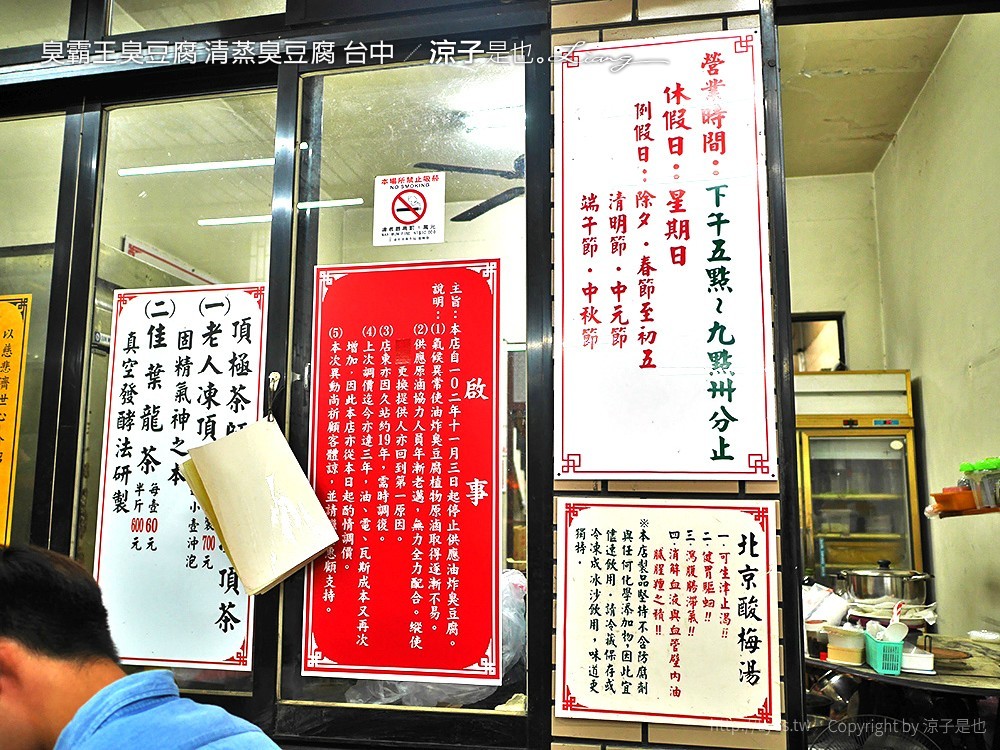 臭霸王臭豆腐 清蒸臭豆腐 台中 ／ 涼子是也。
營業時間：下午五點～九點卅分止
休假日：星期日
例假日：除夕．春節至初五
清明節．中元節
端午節．中秋節
本場所禁止吸菸
NO SMOKING
啟事
主旨：本店自一０二年十一月三日起停止供應油炸臭豆腐。
說明：(1)氣候異常使油炸臭豆腐植物原滷取得逐漸不易。
(2)供應原滷協力人員年漸老邁，無力全力配合。縱使
更換提供人亦回到第一原因。
(3)店東亦因久站約19年，需時調復。
(4)上次調價迄今亦達三年，油、電、瓦斯成本又再次
增加，因此本店亦從本日起酌情調價。
(5)本次異動尚祈顧客體諒，並請
惠顧支持。
頂極茶
頂茶
(一)老人凍頂
700元
固精氣神之本
小壺沖泡
(二)佳葉龍茶 每壺60元
半斤600元
真空發酵法研製
以慈悲濟世
北京酸梅湯
一.可生津止渴!!
二.健胃驅蛔!!
三.瀉腹腸滯氣!!
四.消解血液與血管壁內油
脂腥羶之積!!
※本店製品堅持不含防腐劑
與任何化學添加物，因此宜
儘速飲用．請冷藏保存或
冷凍成冰沙飲用，味道更
獨特．
Copyright by 涼子是也